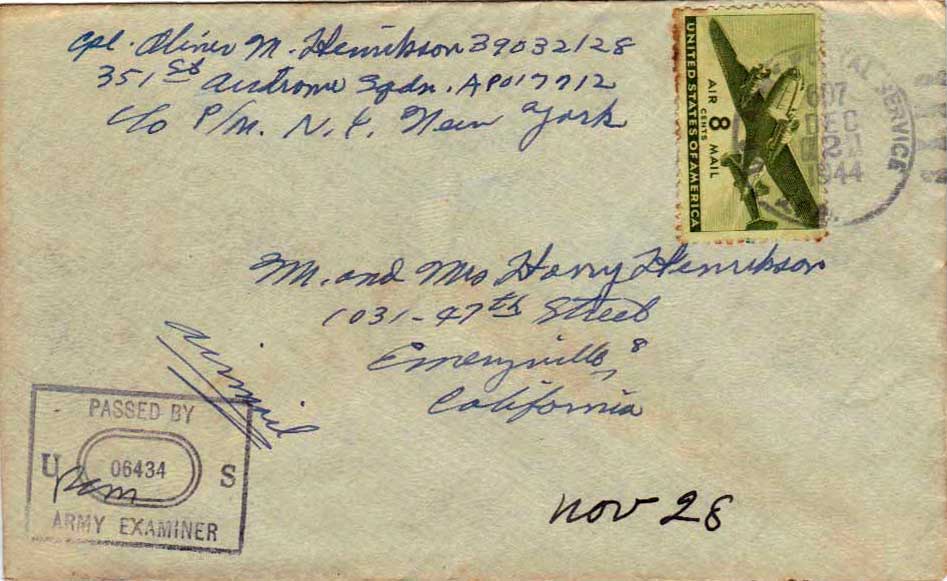 Cpl. Oliver M. Henrikson 39032128
351st Airdrome Sqdn. APO 17712
c/o P/M. N.Y. New York
UNITED STATES OF AMERICA
AIR MAIL
8
CENTS
POSTAL SERVICE
607
DEC
1944
Mr. and Mrs Harry Henrikson
1031-47th Street
Emeryville 8,
California
Airmail
PASSED BY
U S
06434
ARMY EXAMINER
Nov 28